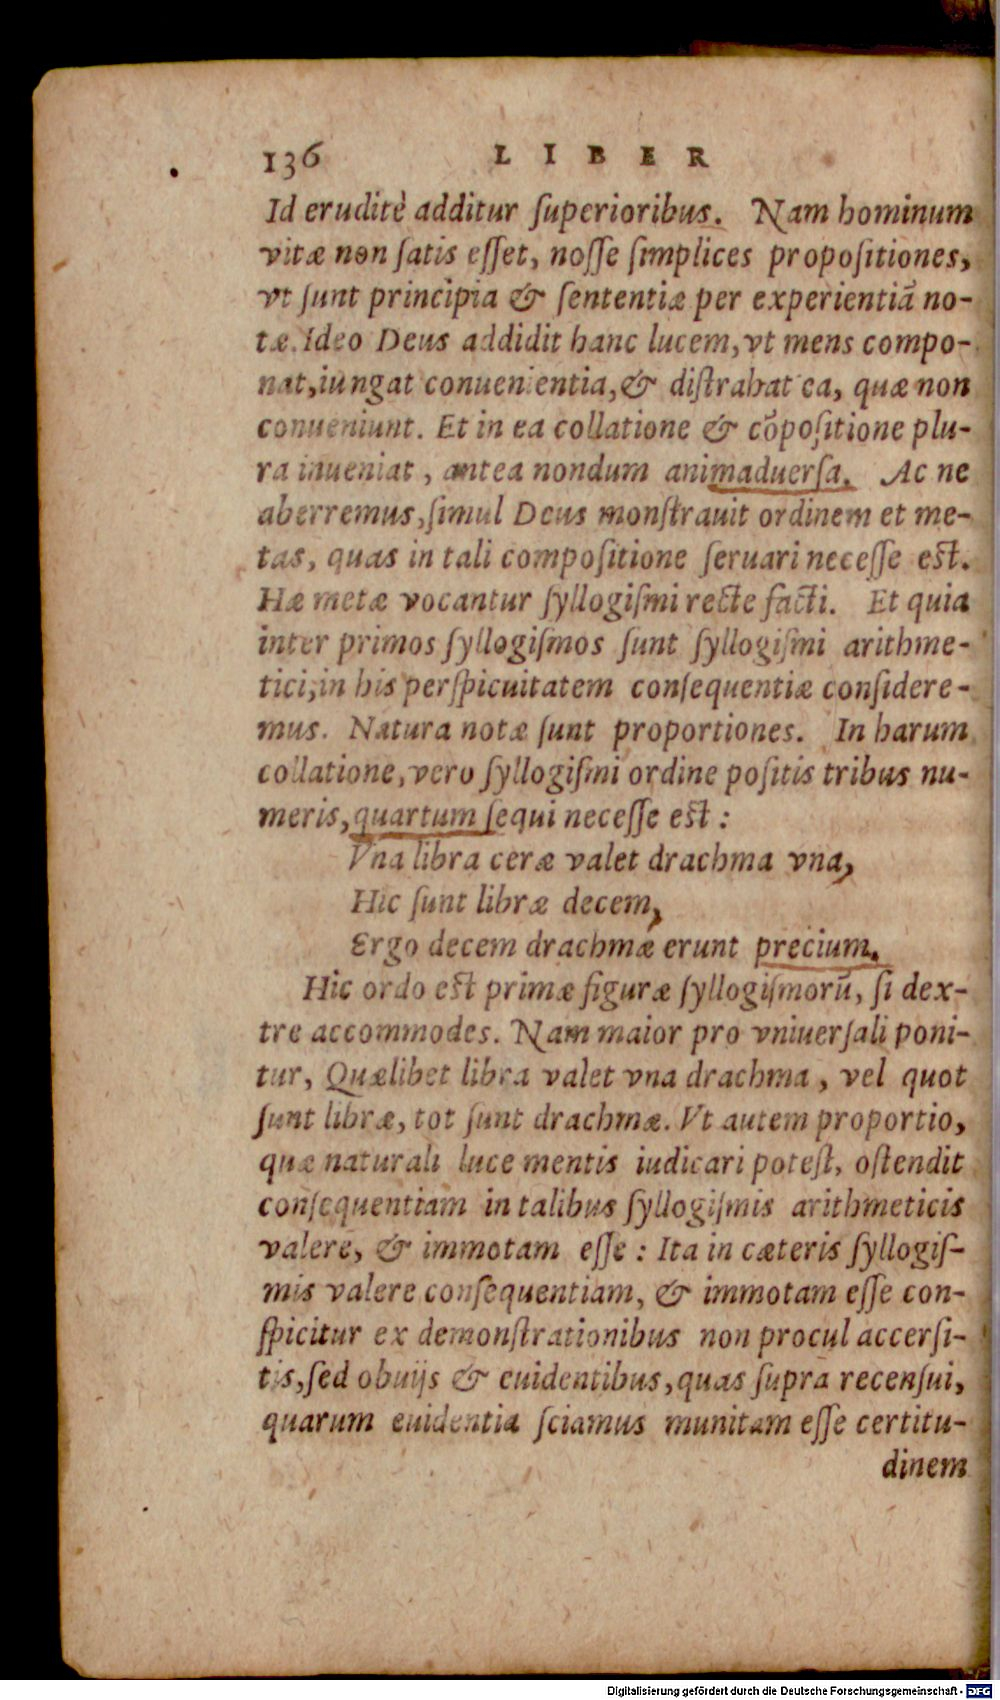 136 LIBER
Id eruditè additur ſuperioribus. Nam hominum
vitæ non ſatis eſſet, noſſe ſimplices propoſitiones,
vt ſunt principia & ſententiæ per experientiā no-
tæ. Ideo Deus addidit hanc lucem, vt mens compo-
nat, iungat conuenientia, & diſtrahat ea, quæ non
conueniunt. Et in ea collatione & cōpoſitione plu-
ra inueniat, antea nondum animaduerſa. Ac ne
aberremus, ſimul Deus monſtrauit ordinem et me-
tas, quas in tali compoſitione ſeruari neceſſe eſt.
Hæ metæ vocantur ſyllogiſmi recte facti. Et quia
inter primos ſyllogiſmos ſunt ſyllogiſmi arithme-
tici, in his perſpicuitatem conſequentiæ conſidere-
mus. Natura notæ ſunt proportiones. In harum
collatione, vero ſyllogiſmi ordine poſitis tribus nu-
meris, quartum ſequi neceſſe eſt:
Vna libra ceræ valet drachma vna,
Hic ſunt libræ decem,
Ergo decem drachmæ erunt precium.
Hic ordo eſt primæ figuræ ſyllogiſmorū, ſi dex-
tre accommodes. Nam maior pro vniuerſali poni-
tur, Quælibet libra valet vna drachma, vel quot
ſunt libræ, tot ſunt drachmæ. Vt autem proportio,
quæ naturali luce mentis iudicari poteſt, oſtendit
conſequentiam in talibus ſyllogiſmis arithmeticis
valere, & immotam eſſe: Ita in cæteris ſyllogiſ-
mis valere conſequentiam, & immotam eſſe con-
ſpicitur ex demonſtrationibus non procul accerſi-
tis, ſed obuijs & euidentibus, quas ſupra recenſui,
quarum euidentia ſciamus munitam eſſe certitu-
dinem
Digitalisierung gefördert durch die Deutsche Forschungsgemeinschaft - DFG